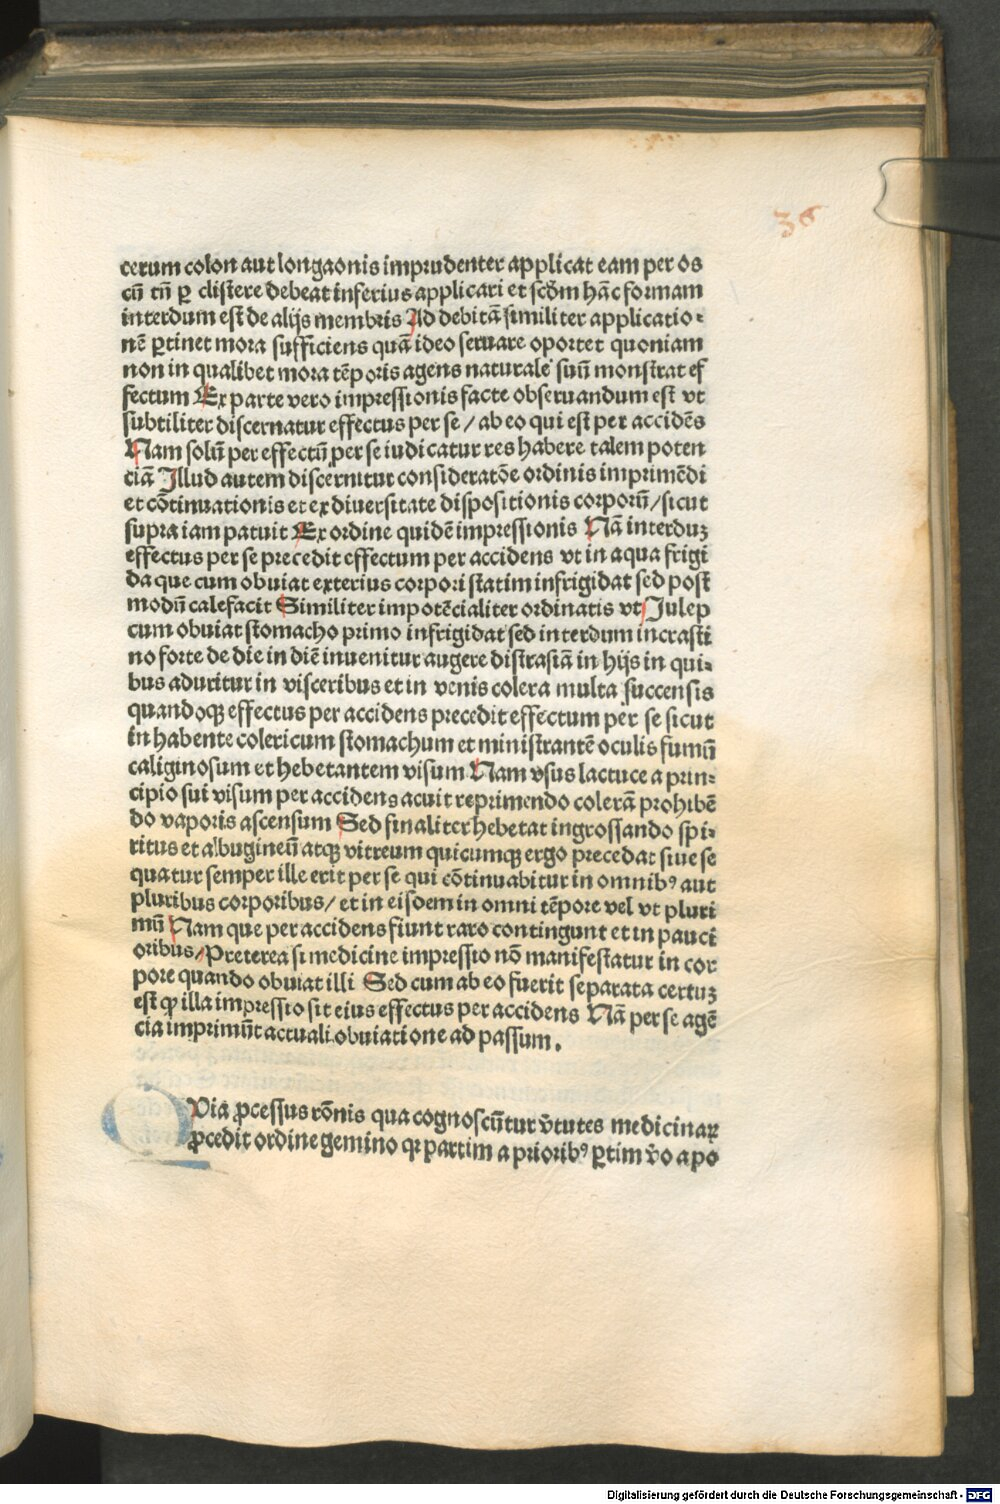 36
cerum colon aut longaonis imprudenter applicat eam per os
cū tn̄ ꝑ clistere debeat inferius applicari et scd̄m hāc formam
interdum est de alijs membris Ad debitā similiter applicatio⸗
nē ꝑtinet mora sufficiens quā ideo seruare oportet quoniam
non in qualibet mora tēporis agens naturale suū monstrat ef
fectum Ex parte vero impressionis facte obseruandum est vt
subtiliter discernatur effectus per se / ab eo qui est per accidēs
Nam solū per effectū per se iudicatur res habere talem poten
ciā Illud autem discernitur consideratōe ordinis imprimēdi
et cōtinuationis et ex diuersitate dispositionis corporū / sicut
supra iam patuit Ex ordine quidē impressionis Nā interduꝫ
effectus per se precedit effectum per accidens vt in aqua frigi
da que cum obuiat exterius corpori statim infrigidat sed post
modū calefacit Similiter impotēcialiter ordinatis vt Julep
cum obuiat stomacho primo infrigidat sed interdum in crasti
no forte de die in diē inuenitur augere distrasiā in hijs in qui⸗
bus aduritur in visceribus et in venis colera multa succensis
quandoqꝫ effectus per accidens precedit effectum per se sicut
in habente colericum stomachum et ministrantē oculis fumū
caliginosum et hebetantem visum Nam vsus lactuce a prin⸗
cipio sui visum per accidens acuit reprimendo colerā prohibē
do vaporis ascensum Sed finaliter hebetat ingrossando spi⸗
ritus et albugineū atqꝫ vitreum quicumqꝫ ergo precedat siue se
quatur semper ille erit per se qui cōtinuabitur in omnibꝰ aut
pluribus corporibus / et in eisdem in omni tēpore vel vt pluri
mū Nam que per accidens fiunt raro contingunt et in pauci
oribus / Preterea si medicine impressio nō manifestatur in cor
pore quando obuiat illi Sed cum ab eo fuerit separata certuꝫ
est ꝙ illa impressio sit eius effectus per accidens Nā per se agē
cia imprimūt actuali obuiatione ad passum .
QVia ꝓcessus rōnis qua cognoscūtur v̄tutes medicinaꝝ
ꝓcedit ordine gemino qꝛ partim a prioribꝰ ꝑtim v̄o a po
Digitalisierung gefördert durch die Deutsche Forschungsgemeinschaft - DFG